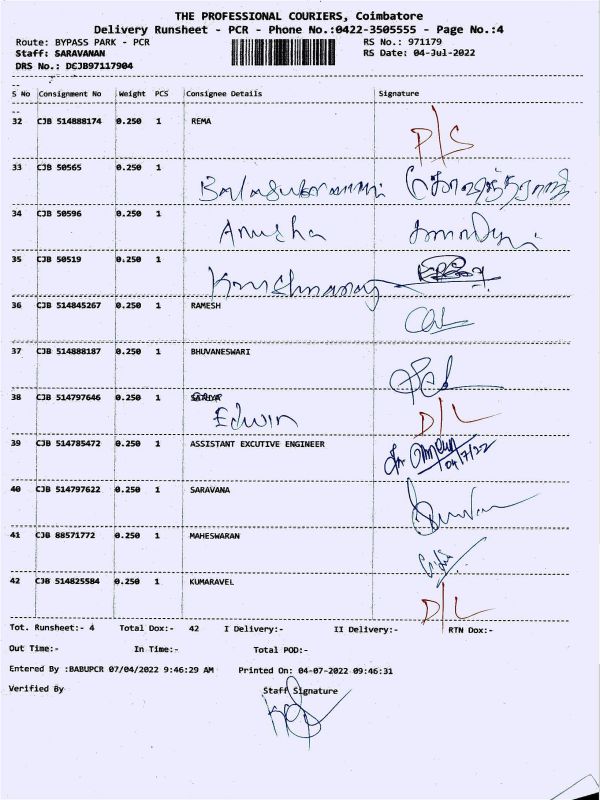 THE PROFESSIONAL COURIERS, Coimbatore
Delivery Runsheet - PCR - Phone No.:0422-3505555 - Page No.:4
Route: BYPASS PARK - PCR RS No.: 971179
Staff: SARAVANAN RS Date: 04-Jul-2022
DRS No.: DCJB97117904
S No Consignment No Weight PCS Consignee Details Signature
32 CJB 514888174 0.250 1 REMA P/S
33 CJB 50565 0.250 1
Balasubramani
34 CJB 50596 0.250 1
Anusha
35 CJB 50519 0.250 1
36 CJB 514845267 0.250 1 RAMESH
37 CJB 514888187 0.250 1 BHUVANESWARI
38 CJB 514797646 0.250 1
Edwin D/L
39 CJB 514785472 0.250 1 ASSISTANT EXCUTIVE ENGINEER
04/7/22
40 CJB 514797622 0.250 1 SARAVANA
41 CJB 88571772 0.250 1 MAHESWARAN
42 CJB 514825584 0.250 1 KUMARAVEL D/L
Tot. Runsheet:- 4 Total Dox:- 42 I Delivery:- II Delivery:- RTN Dox:-
Out Time:- In Time:- Total POD:-
Entered By :BABUPCR 07/04/2022 9:46:29 AM Printed On: 04-07-2022 09:46:31
Verified By Staff Signature